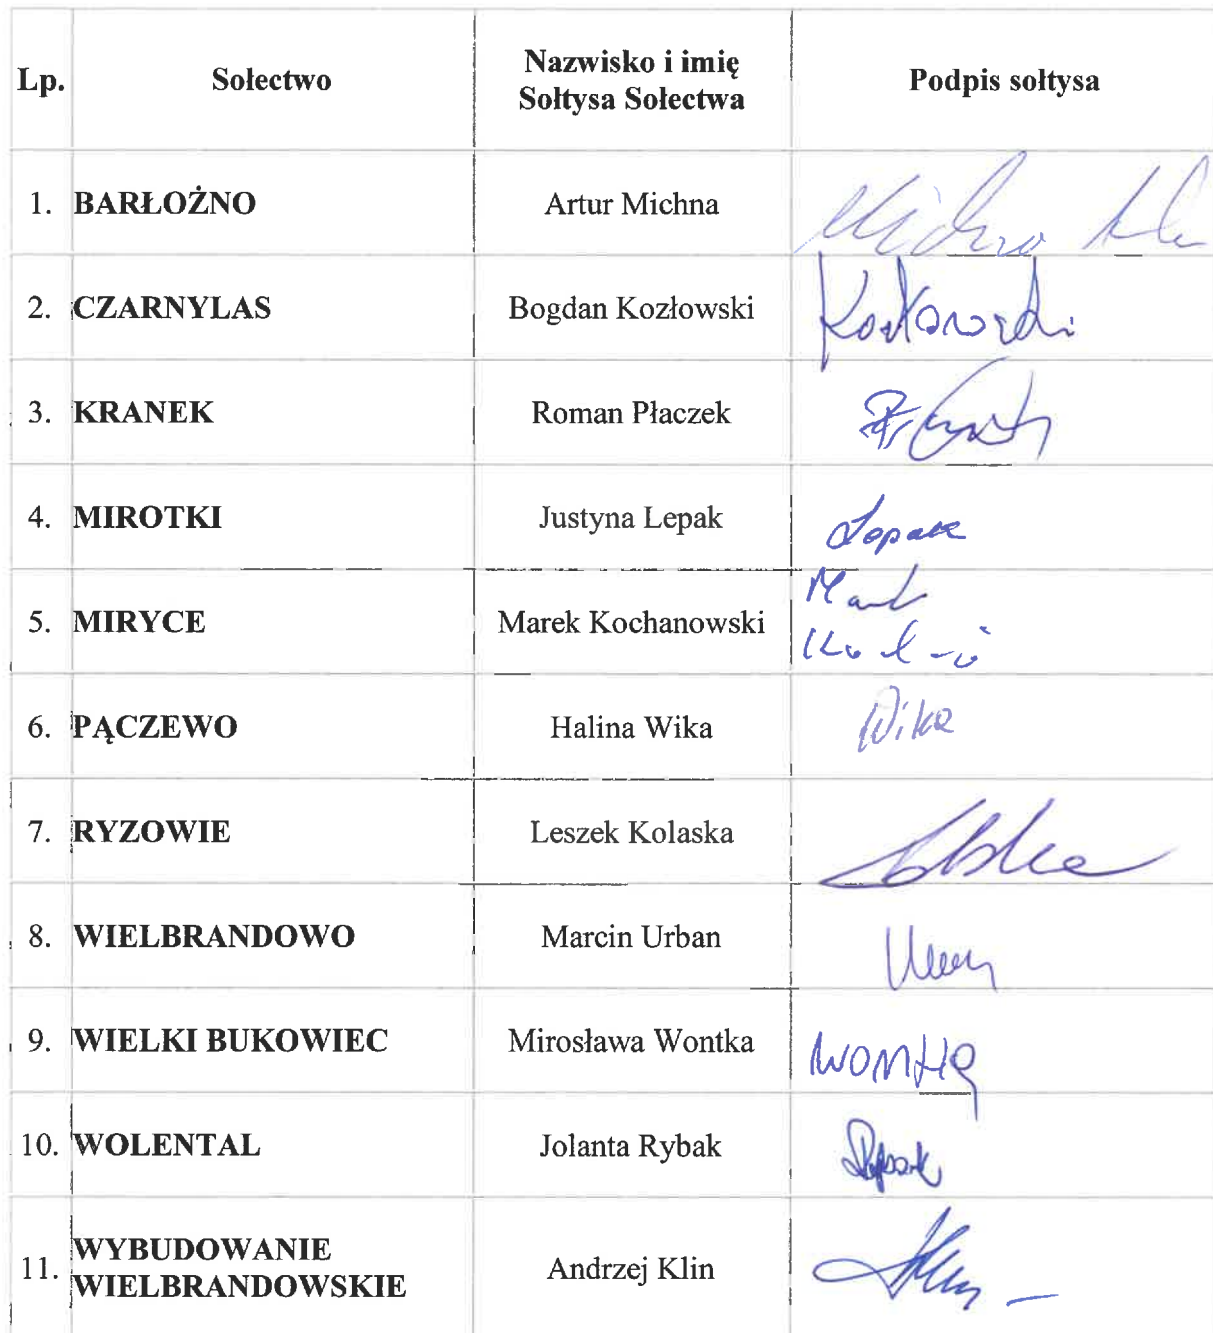 Lp. Sołectwo Nazwisko i imię Sołtysa Sołectwa Podpis sołtysa
1. BARŁOŻNO Artur Michna Michna
2. CZARNYLAS Bogdan Kozłowski Kozłowski
3. KRANEK Roman Płaczek
4. MIROTKI Justyna Lepak Lepak
5. MIRYCE Marek Kochanowski Marek
6. PĄCZEWO Halina Wika Wika
7. RYZOWIE Leszek Kolaska
8. WIELBRANDOWO Marcin Urban
9. WIELKI BUKOWIEC Mirosława Wontka Wontka
10. WOLENTAL Jolanta Rybak Rybak
11. WYBUDOWANIE WIELBRANDOWSKIE Andrzej Klin